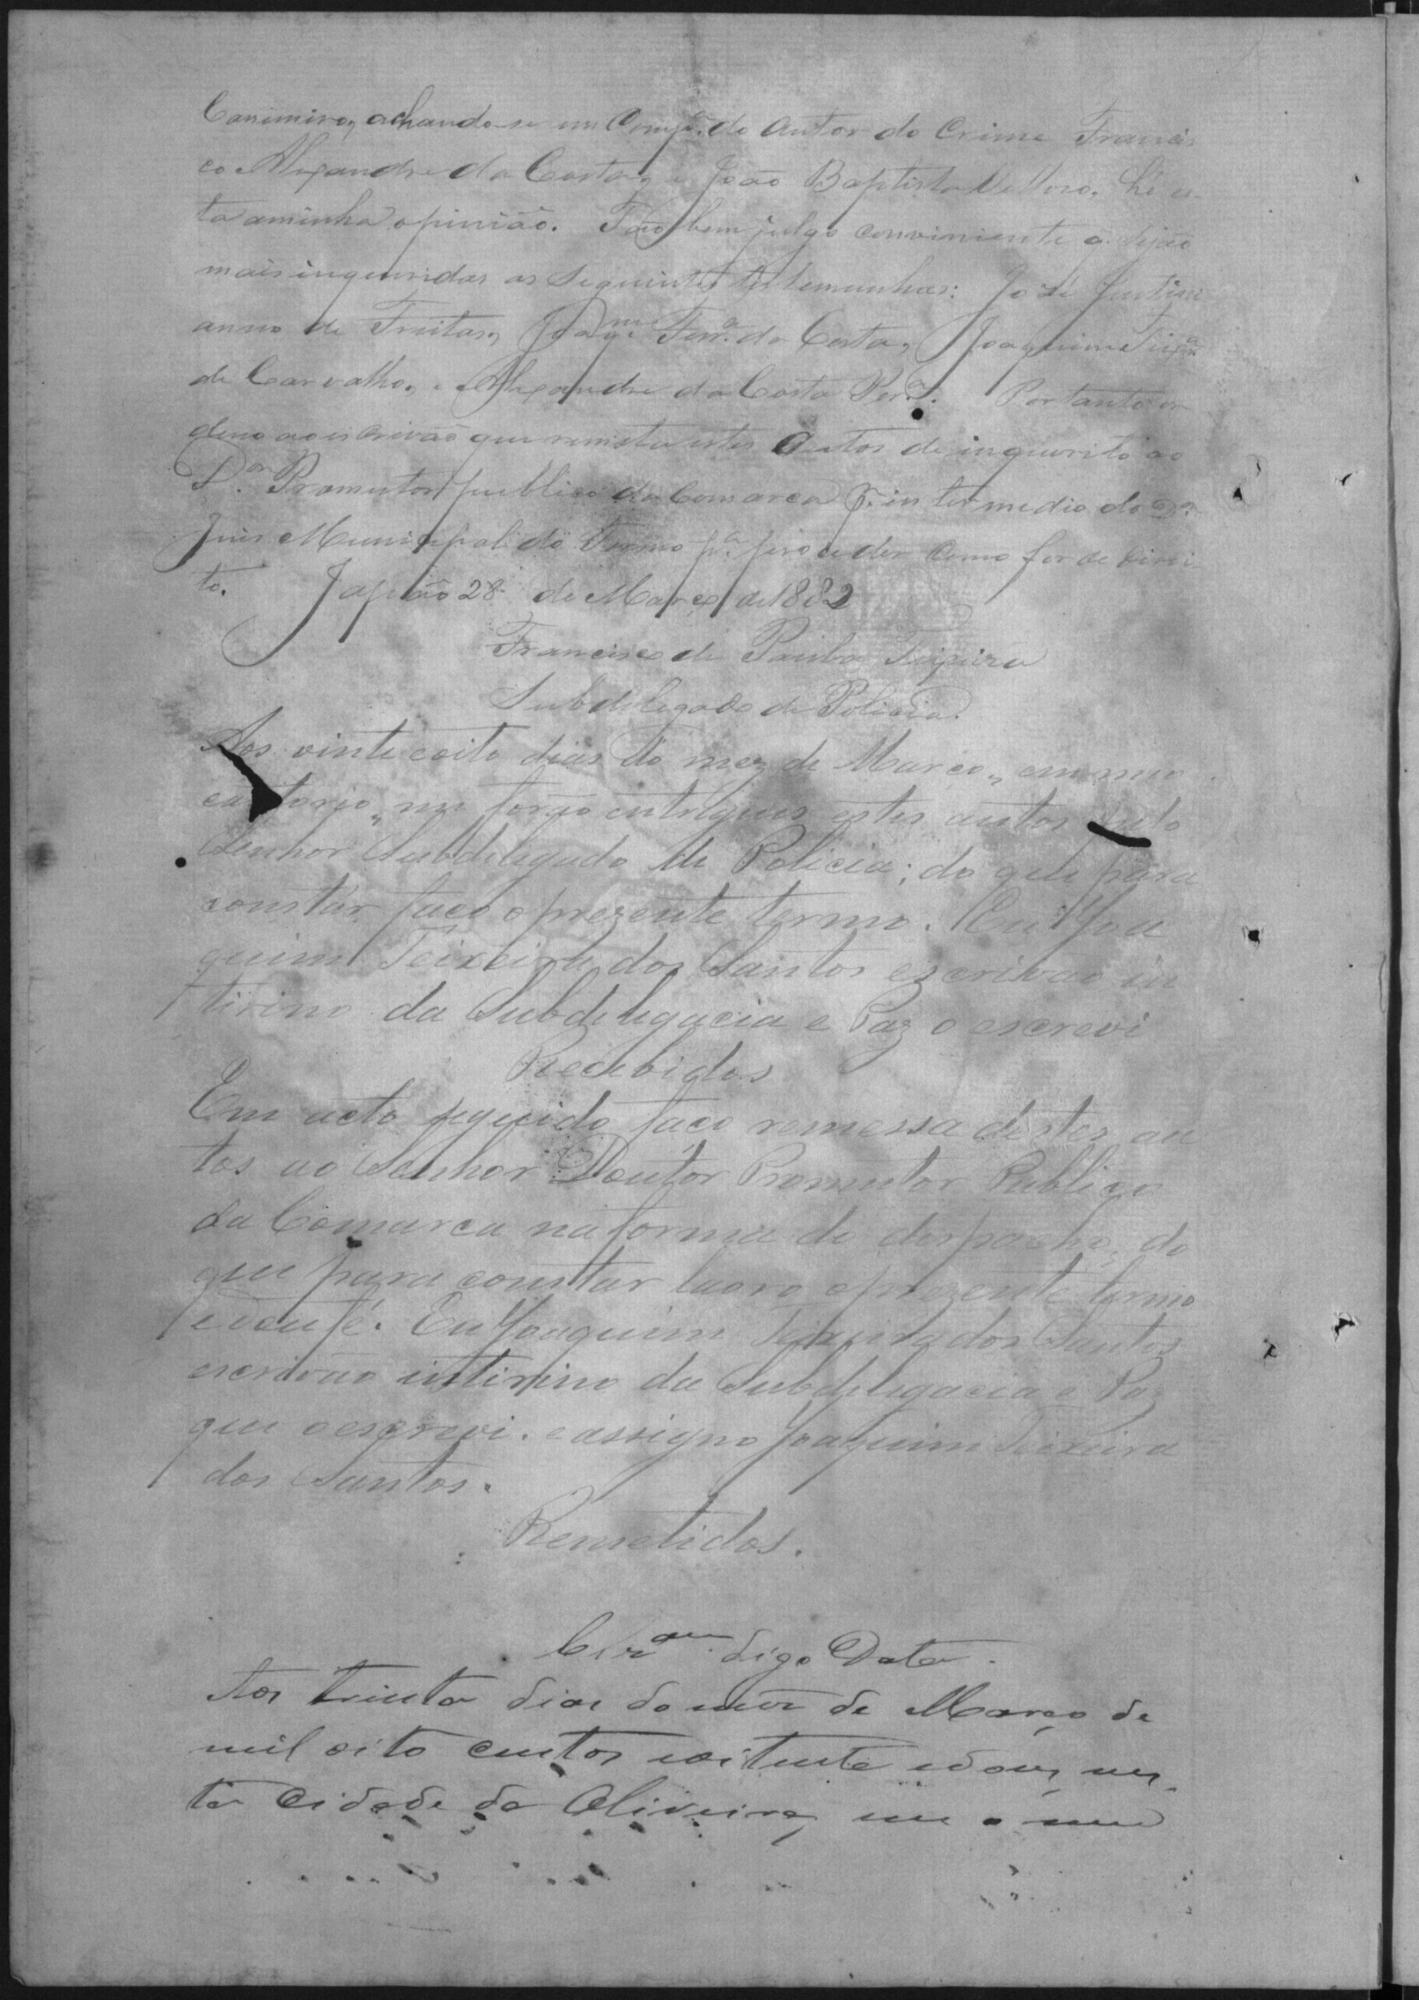 Casimiro, achando-se em Comp.ª do Autor do Crime Francis
co Alexandre da Costa, e João Baptista Velloso. hé es
ta a minha opinião. Tãobem julgo conviniente q. sejão
mais inqueridas as seguintes testemunhas: José Justini
anno de Freitas, Joaq.m Ferr.ª da Costa, Joaquim Teix.ª
de Carvalho, e Alexandre da Costa Per.ª. Portanto or
deno ao escrivão que remeta estes Autos de inquerito ao
D.or Promutor publico da Comarca p.r intermedio do D.r
Juis Municipal do Termo p.ª proceder como for de direi
to. Japão 28 de Março de 1882
Francisco de Paula Teixeira
Subdelegado de Policia.
Aos vinte e oito dias do mez de Março, em meo
cartorio, me forão entregues estes autos pelo
Senhor Subdelegado de Policia; do que para
constar faço o prezente termo. Eu Joa
quim Teixeira dos Santos ezcrivão in
tirino da Subdelegacia e Paz o escrevi
Recebidos
Em acto seguido faço remessa déstes au
tos ao Senhor Doutor Promutor Publico
da Comarca na forma do despacho, do
que para constar lavro o prezente termo
e dou fé. Eu Joaquim Teixeira dos Santos
escrivão intirino da Subdelegacia e Paz
que o escrevi. e assigno Joaquim Teixeira
dos Santos.
Remetidos.
digo Data.
Aos trinta dias do mez de Março de
mil oito centos e oitenta e dous, nes
ta Cidade da Oliveira, em o meu